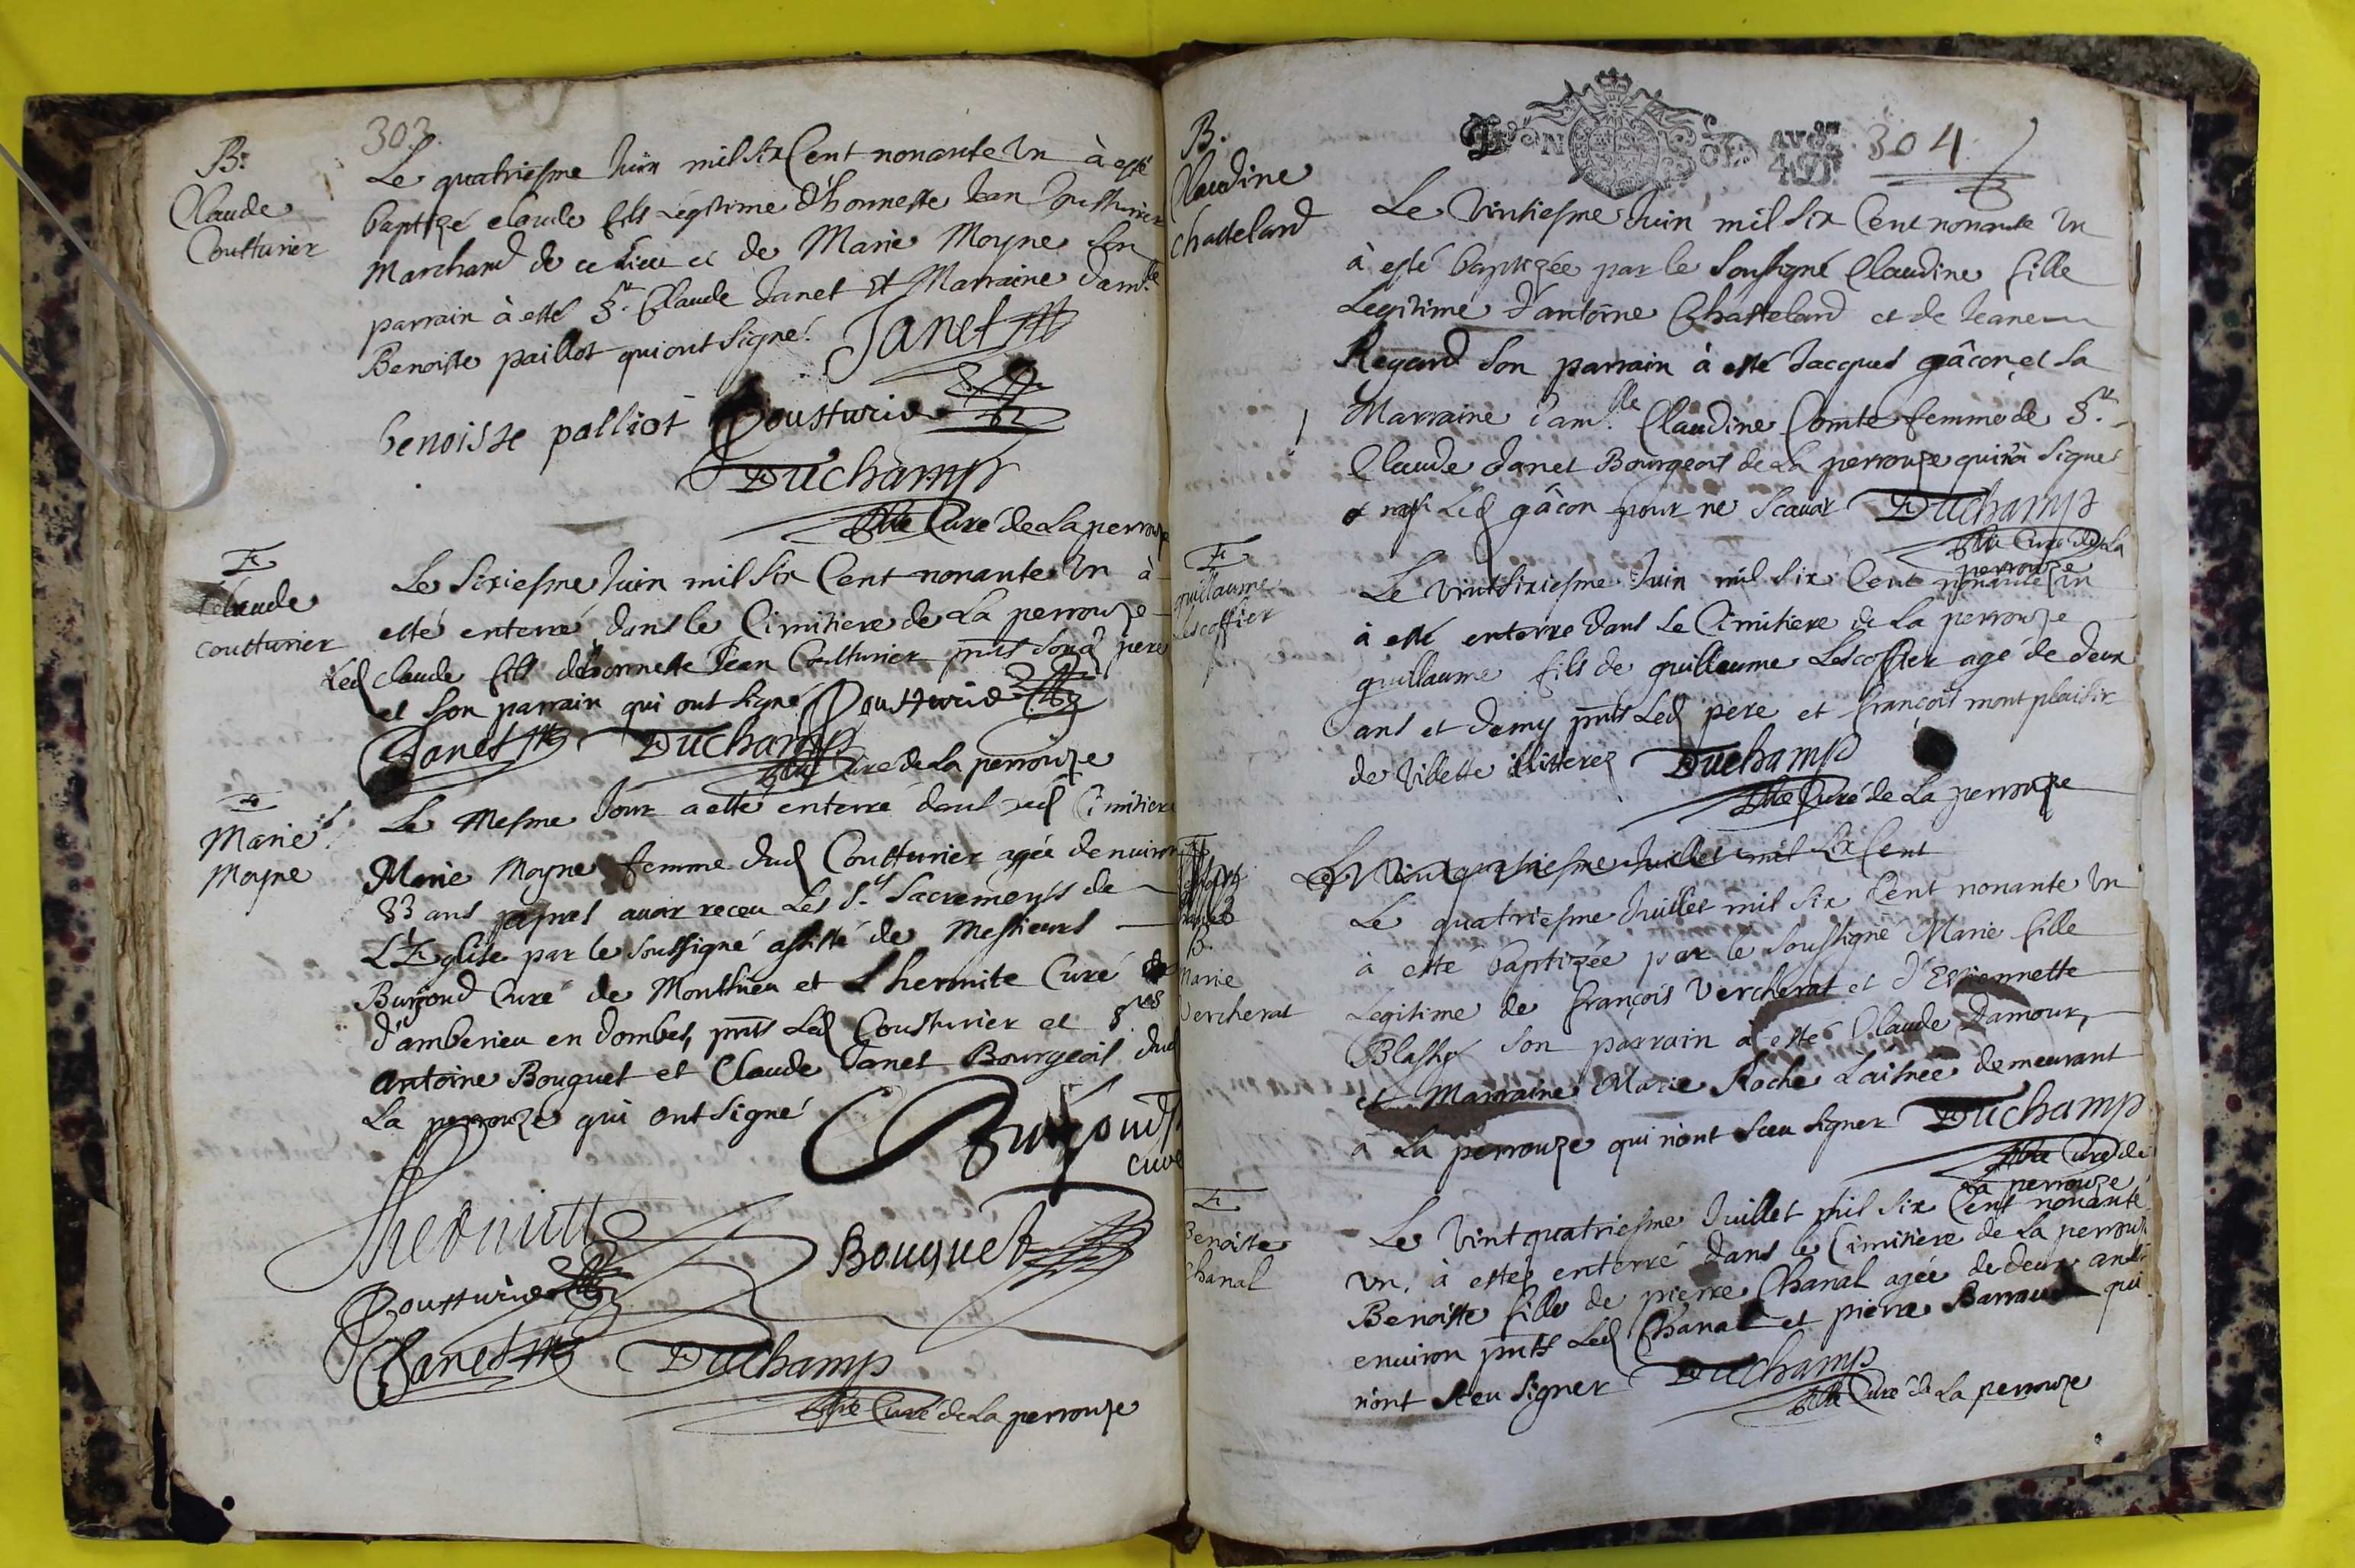 303.
B.
Claude
Coutturier
Le quatriesme Juin mil six Cent nonante Un à esté
baptizé claude fils Légitime d'honneste Jean Coutturier
Marchand de ce Lieu et de Marie Moyne Son
parrain à esté Sr. Claude Janet et Marraine dam.lle
Benoiste paillot qui ont signé. Janet
benoisse palliot Cousturier
Duchamp
pbre Curé de La perrouze
E
Claude
coutturier
Le Sixiesme Juin mil Six Cent nonante Un à
esté enterré dans le Cimitiere de La perrouze
Led claude fils d'honneste Jean Coutturier pnts Sond pere
et Son parrain qui ont signé Cousturier
Janet Duchamp
pbre Curé de La perrouze
E
Marie
Moyne
Le Mesme Jour a esté enterré dans led Cimitiere
Marie Moyne femme dud Coutturier agée denuiron
33 ans apres auoir receu Les Sts Sacrements de
L'Eglise par le Soussigné assisté de Messieurs
Burjoud Curé de Monthieu et Lhermite Curé
d'amberieu en dombes, pnts Led Cousturier et Srs
antoine Bouquet et Claude Janet Bourgeois dud
La perrouze qui ont signé
Burjoud
curé
Lhermitte
Bouquet
Cousturier
Janet Duchamp
pbre Curé de La perrouze
304
B.
Claudine
chattelard
Le Vintiesme Juin mil Six Cent nonante Un
à esté baptizée par le Soussigné Claudine fille
Legitime d'antoine Chattelard et de Jeane
Regard Son parrain à esté Jacques gâcon et Sa
Marraine dam.lle Claudine Comte femme de Sr.
Claude Janet Bourgeois de La perrouze qui à signé
Led gâcon pour ne Scauoir Duchamp
pbre Curé de La
perrouze
E
guillaume
Lescoffier
Le Vintsixiesme Juin mil Six Cent nonante Un
à esté enterre dans Le Cimitiere de La perrouze
guillaume fils de guillaume Lescoffier agé de deux
ans et demy pnts Led pere et françois mont plaisir
de Villette illiterez Duchamp
pbre Curé de La perrouze
Le Vintquatriesme Juillet mil Six Cent
B.
Marie
Vercherat
Le quatriesme Juillet mil Six Cent nonante Un
à esté baptizée par le Soussigné Marie fille
Legitime de françois Vercherat et d'Estiennette
Son parrain à esté Claude Damour,
et Marraine Marie Roche Laisnée demeurant
a La perrouze qui n'ont Sceu signer Duchamp
pbre Curé de
La perrouze
E
Benoiste
Chanal
Le Vintquatriesme Juillet mil Six Cent nonante
Un, à esté enterré dans le Cimitiere de La perrouze
Benoiste fille de pierre Chanal agée de deux ans
enuiron pnts Led Chanal et pierre Barraud qui
n'ont Sceu signer Duchamp
pbre Curé de La perrouze